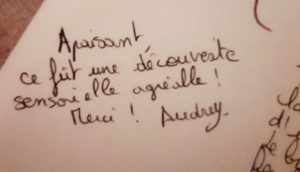 Apaisant
ce fut une découverte
sensorielle agréable !
Merci ! Audrey.